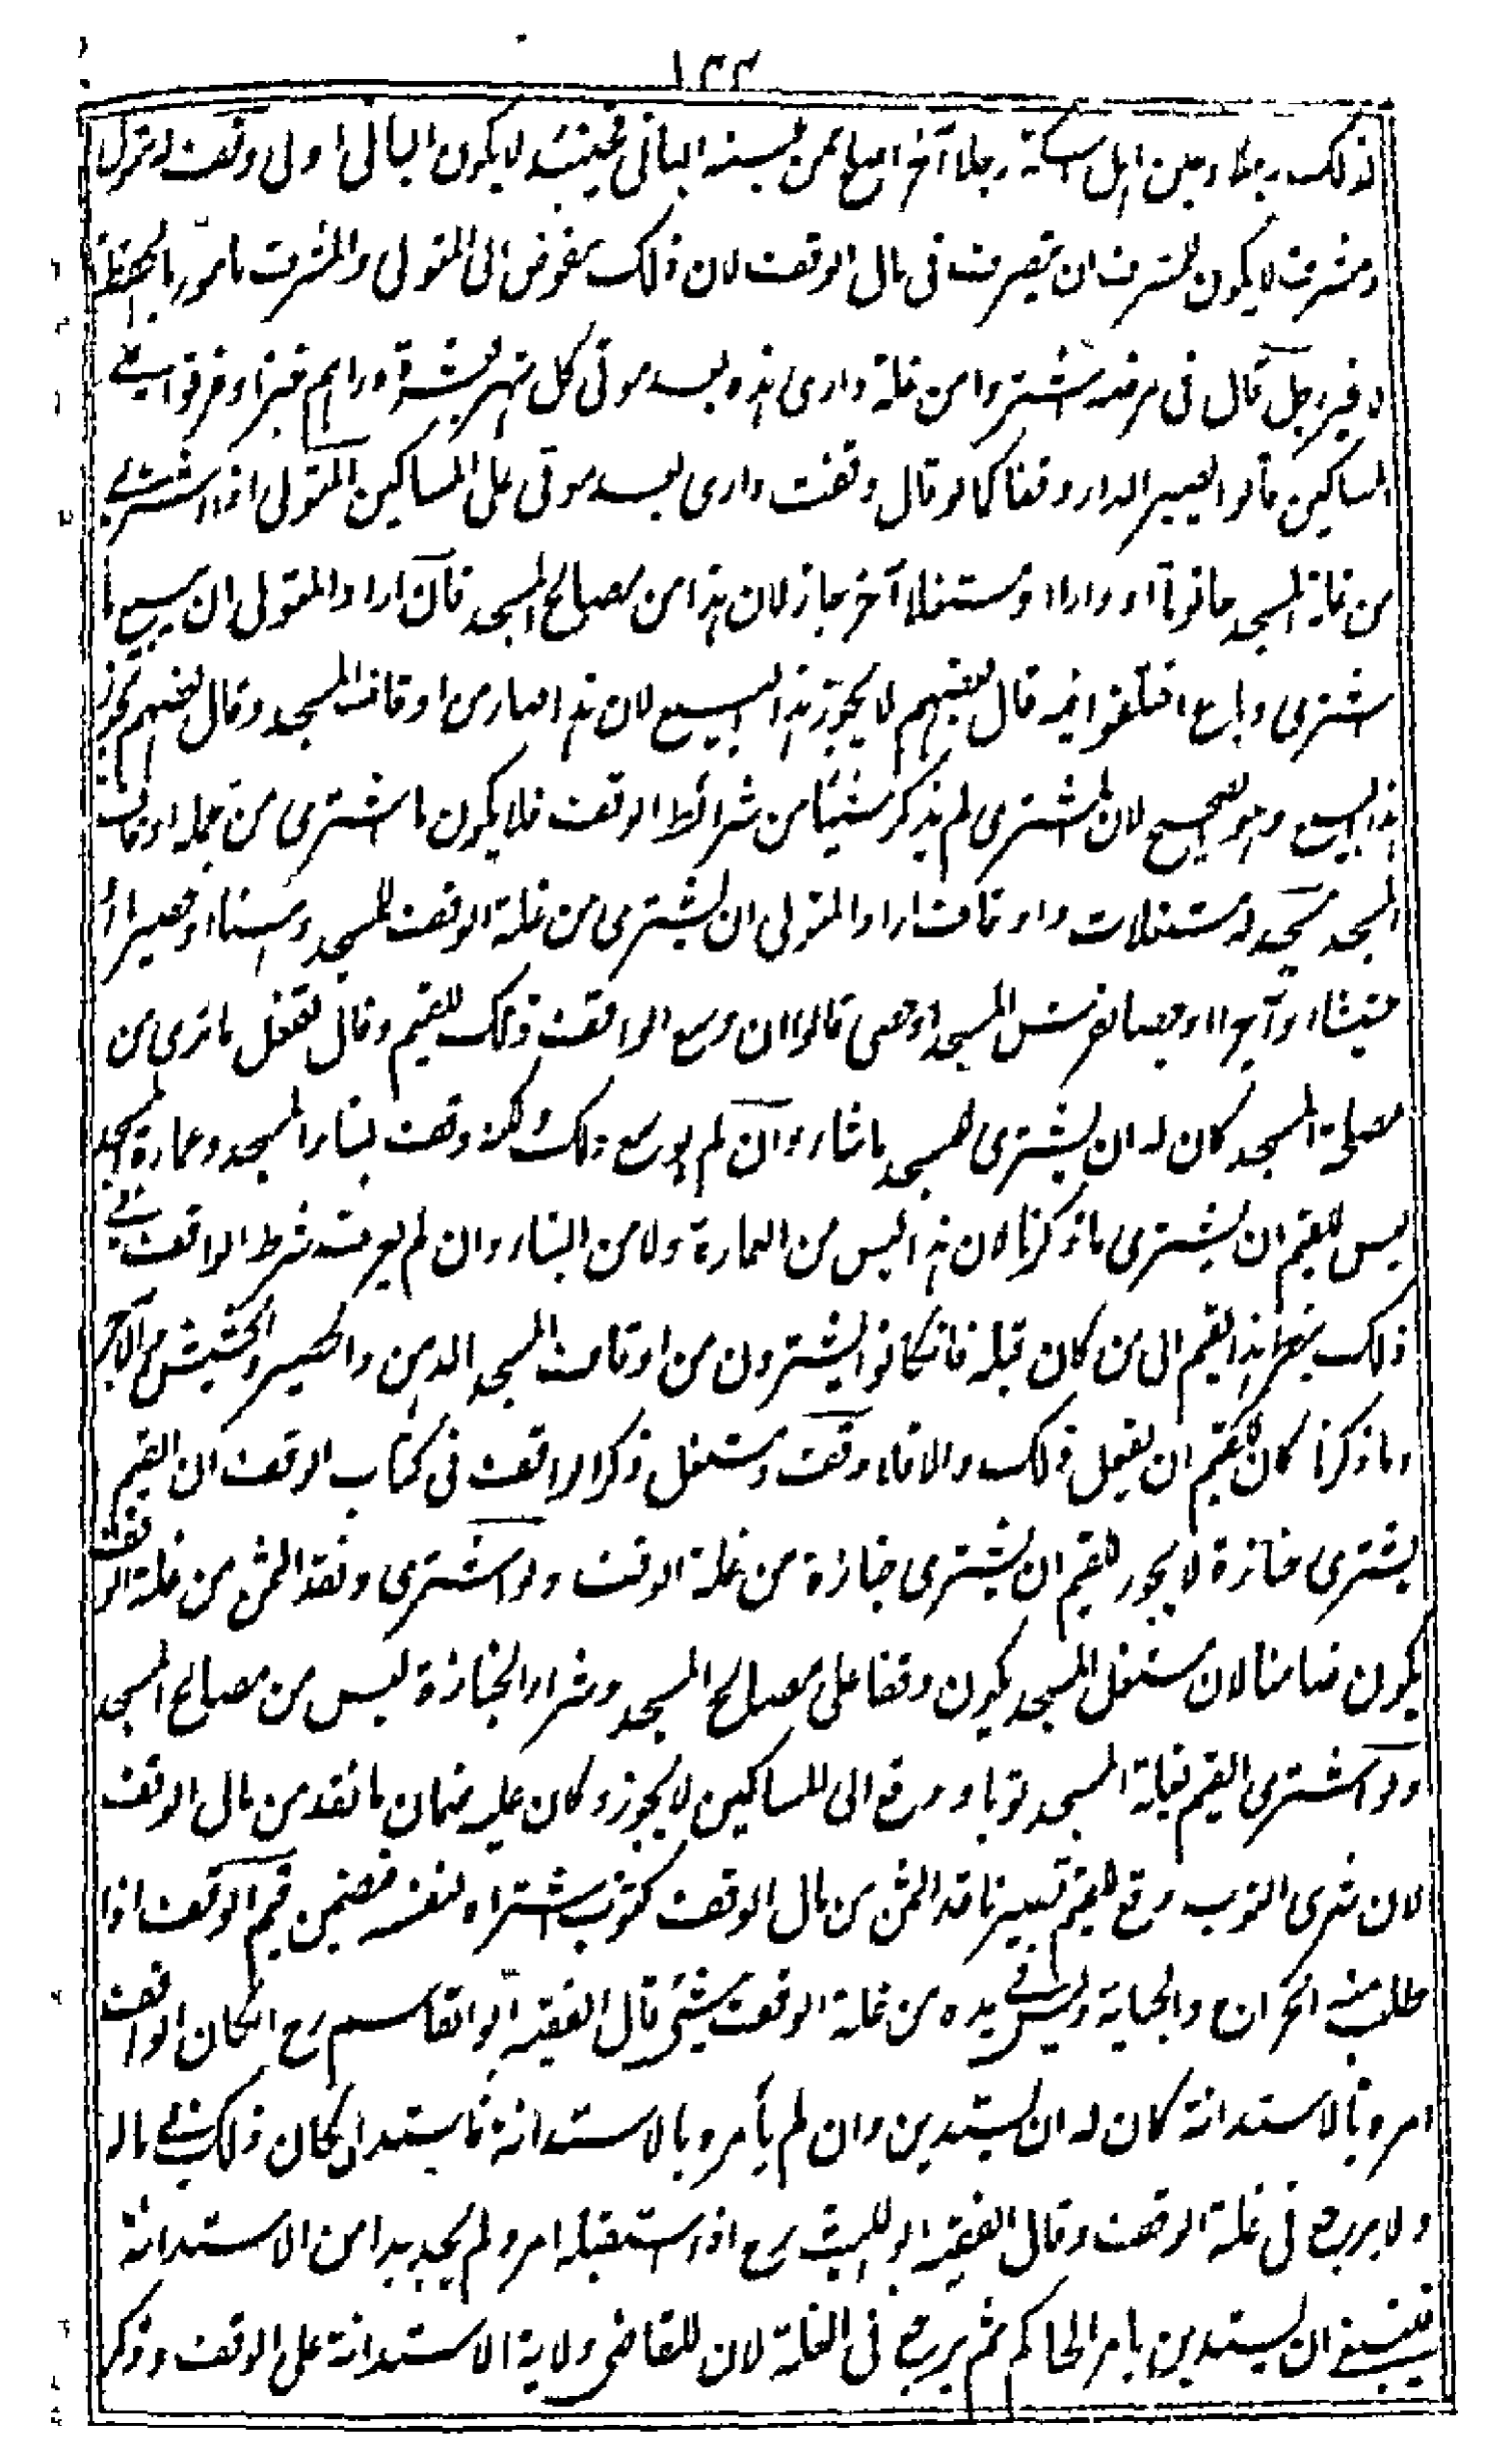 ١٣٣
لذلك رجلا وعين اهل السكة رجلا آخر اصلح ممن عينه البانى فحينئذ لا يكون البانى اولى وقف له متول
ومشرف لا يكون للمشرف ان يتصرف فى مال الوقف لان ذلك مفوض الى المتولى والمشرف مامور بالحفظ
لا غير رجل قال فى مرضه اشتروا من غلة دارى هذه بعد موتى كل شهر بعشرة دراهم خبزا وفرقوا على
المساكين قالوا تصير الدار وقفا كما لو قال وقفت دارى بعد موتى على المساكين المتولى اذا اشترى
من غلة المسجد حانوتا او دارا او مستغلا آخر جاز لان هذا من مصالح المسجد فان اراد المتولى ان يبيع ما
اشترى وباع اختلفوا فيه قال بعضهم لا يجوز هذا البيع لان هذا صار من اوقاف المسجد وقال بعضهم يجوز
هذا البيع وهو الصحيح لان المشترى لم يذكر شيئا من شرائط الوقف فلا يكون ما اشترى من جملة اوقاف
المسجد مسجد له مستغلات واوقاف اراد المتولى ان يشترى من غلة الوقف للمسجد دهنا او حصيرا او
حشيشا او آجرا او جصا لفرش المسجد او حصى قالوا ان وسع الواقف ذلك للقيم وقال تفعل ما ترى من
مصلحة المسجد كان له ان يشترى للمسجد ما شاء وان لم يوسع ذلك ولكنه وقف لبناء المسجد وعمارة المسجد
ليس للقيم ان يشترى ما ذكرنا لان هذا ليس من العمارة ولا من البناء وان لم يعرف شرط الواقف فى
ذلك ينظر هذا القيم الى من كان قبله فان كانوا يشترون من اوقاف المسجد الدهن والحصير والحشيش والآجر
وما ذكرنا كان للقيم ان يفعل ذلك والا فلا وقف ومستغل ذكر الواقف فى كتاب الوقف ان القيم
يشترى جنازة لا يجوز للقيم ان يشترى جنازة من غلة الوقف ولو اشترى ونقد الثمن من غلة الوقف
يكون ضامنا لان مستغل المسجد يكون وقفا على مصالح المسجد وشراء الجنازة ليس من مصالح المسجد
ولو اشترى القيم بغلة المسجد ثوبا ودفع الى المساكين لا يجوز وكان عليه ضمان ما نقد من مال الوقف
لان شرى الثوب وقع للقيم فيصير ناقد الثمن من مال الوقف كثوب اشتراه لنفسه فيضمن قيم الوقف اذا
طلب منه الخراج والجباية وليس فى يده من غلة الوقف شىء قال الفقيه ابو القاسم رح ان كان الواقف
امره بالاستدانة كان له ان يستدين وان لم يأمره بالاستدانة فاستدان كان ذلك فى ماله
ولا يرجع فى غلة الوقف وقال الفقيه ابو الليث رح اذا استقبله امر ولم يجد بدا من الاستدانة
فينبغى ان يستدين بامر الحاكم ثم يرجع فى الغلة لان للقاضى ولاية الاستدانة على الوقف وذكر